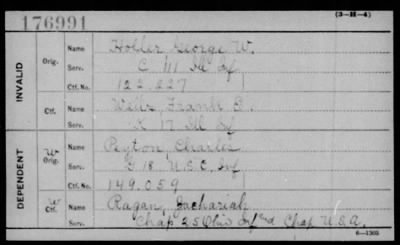 176991
(3-H-4)
INVALID
Orig.
Name Holler George W.
Serv. C 111 Ill Inf
Ctf. No. 122.227
Ctf.
Name Wells, Frank B.
Serv. K 17 Ill Inf
DEPENDENT
W
Orig.
Name Peyton, Charles
Serv. G 18 U.S.C. Inf
Ctf. No. 149.059
W
Ctf.
Name Ragan, Zachariah
Serv. Chap 25 Ohio Inf and Chap U.S.A.
6-1303